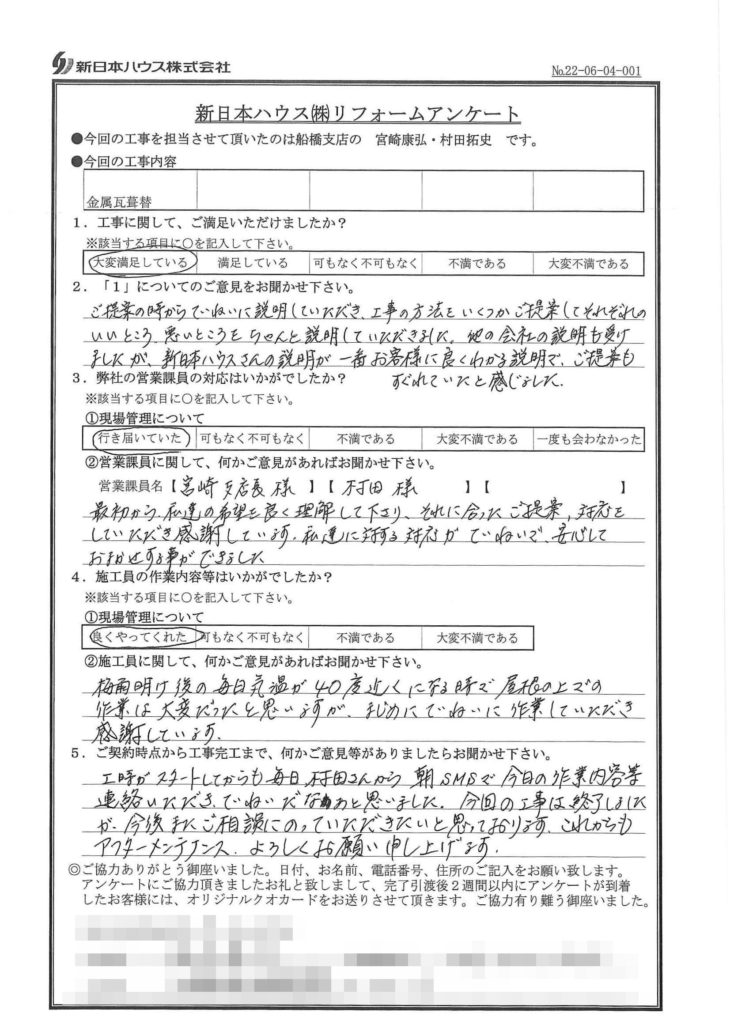 新日本ハウス株式会社
No.22-06-04-001
新日本ハウス㈱リフォームアンケート
●今回の工事を担当させて頂いたのは船橋支店の 宮崎康弘・村田拓史 です。
●今回の工事内容
金属瓦葺替
1．工事に関して、ご満足いただけましたか？
※該当する項目に○を記入して下さい。
大変満足している 満足している 可もなく不可もなく 不満である 大変不満である
2．「1」についてのご意見をお聞かせ下さい。
ご提案の時からていねいに説明していただき、工事の方法をいくつかご提案してそれぞれの
いいところ、悪いところをちゃんと説明していただきました。他の会社の説明も受け
ましたが、新日本ハウスさんの説明が一番お客様に良くわかる説明で、ご提案も
すぐれていたと感じました。
3．弊社の営業課員の対応はいかがでしたか？
※該当する項目に○を記入して下さい。
①現場管理について
行き届いていた 可もなく不可もなく 不満である 大変不満である 一度も会わなかった
②営業課員に関して、何かご意見があればお聞かせ下さい。
営業課員名【宮崎支店長様 】【村田 様 】【 】
最初から、私達の希望を良く理解して下さり、それに合ったご提案、対応を
していただき感謝しています。私達に対する対応が ていねいで、安心して
おまかせする事ができました
4．施工員の作業内容等はいかがでしたか？
※該当する項目に○を記入して下さい。
①現場管理について
良くやってくれた 可もなく不可もなく 不満である 大変不満である
②施工員に関して、何かご意見があればお聞かせ下さい。
梅雨明け後の毎日気温が40度近くになる時で屋根の上での
作業は大変だったと思いますが、まじめにていねいに作業していただき
感謝しています。
5．ご契約時点から工事完工まで、何かご意見等がありましたらお聞かせ下さい。
工時がスタートしてからも毎日、村田さんから 朝SMSで今日の作業内容等
連絡いただき、ていねいだなぁと思いました。今回の工事は終了しました
が、今後またご相談にのっていただきたいと思っております。これからも
アフターメンテナンス、よろしくお願い申し上げます。
◎ご協力ありがとう御座いました。日付、お名前、電話番号、住所のご記入をお願い致します。
アンケートにご協力頂きましたお礼と致しまして、完了引渡後２週間以内にアンケートが到着
したお客様には、オリジナルクオカードをお送りさせて頂きます。ご協力有り難う御座いました。